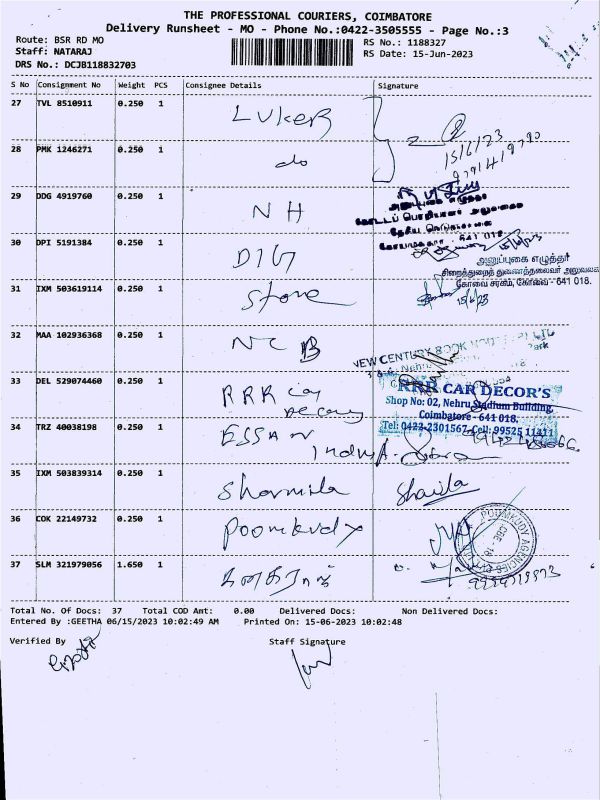 THE PROFESSIONAL COURIERS, COIMBATORE
Delivery Runsheet - MO - Phone No.:0422-3505555 - Page No.:3
Route: BSR RD MO
RS No.: 1188327
Staff: NATARAJ
RS Date: 15-Jun-2023
DRS No.: DCJB118832703
S No Consignment No Weight PCS Consignee Details Signature
27 TVL 8510911 0.250 1 LUKER
15/6/23
28 PMK 1246271 0.250 1 do
29 DDG 4919760 0.250 1 NH
கோவை - 641 018
30 DPI 5191384 0.250 1 DIG
அனுப்புகை எழுத்தர்
சிறைத்துறைத் துணைத்தலைவர் அலுவலக
கோவை சரகம், கோவை - 641 018.
31 IXM 503619114 0.250 1 Store
15/6/23
32 MAA 102936368 0.250 1 NCB
NEW CENTURY BOOK
33 DEL 529074460 0.250 1 RRR Car Decors
RRR CAR DECOR'S
Shop No: 02, Nehru Stadium Building,
Coimbatore - 641 018.
Tel: 0422-2301567 Cell: 99525 11411
34 TRZ 40038198 0.250 1 ESSAN
India
35 IXM 503839314 0.250 1 Sharmila Shaila
36 COK 22149732 0.250 1 Poomkudy
POOMKUDY AGENCIES
CBE. 18
37 SLM 321979056 1.650 1 கனகராஜ்
Total No. Of Docs: 37 Total COD Amt: 0.00 Delivered Docs: Non Delivered Docs:
Entered By :GEETHA 06/15/2023 10:02:49 AM Printed On: 15-06-2023 10:02:48
Verified By Staff Signature